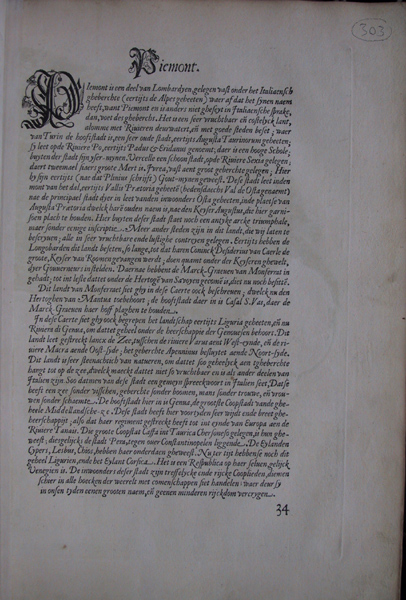 303
Piemont.
Piemont is een deel van Lombardyen, gelegen vast onder het Italiaensch
gheberchte (eertijts de Alpes gheheeten) waer af dat het synen naem
heeft, want Piemont en is anders niet ghesyt in Italiaensche sprake,
dan, voet des gheberchts. Het is een seer vruchtbaer en costelyck lant,
alomme met Rivieren deurwatert, en met goede steden beset; waer
van Turin de hooftstadt is, een seer oude stadt, eertyts Augusta Taurinorum geheeten,
sy leet opde Riviere Po, eertyts Padus en Eridanus genoemt; daer is een hooge Schole,
buyten der stadt syn yser-mynen. Vercelle een schoon stadt, opde Riviere Sexia gelegen,
daert tweemael siaers groote Mert is. Ivrea, vast aent groot geberchte gelegen; Hier
by syn eertyts (nae dat Plinius schrijft) Gout-mynen geweest. Dese stadt leet inden
mont van het dal, eertyts Vallis Pratoria geheeten (hedensdaechs Val de Osta genaemt)
nae de principael stadt dyer in leet vanden inwoonders Osta geheeten, inde plaetse van
Augusta Pratoria dwelck haer ouden naem is, nae den Keyser Augustus, die hier garnisoen
plach te houden. Hier buyten deser stadt staet noch een antyke arcke triumphale,
maer sonder eenige inscriptie. Meer ander steden zijn in dit landt, die wy laten te
beschryven; alle in seer vruchtbare ende lustighe contreyen gelegen. Eertijts hebben de
Longobarden dit landt beseten, so lange, tot dat haren Coninck Desiderius van Caerle de
groote, Keyser van Roomen gevangen werdt; doen quamt onder der Keyseren ghewelt,
dyer Gouverneurs in stelden. Daernae hebbent de Marck-Graeuen van Monferrat in
gehadt; tot int leste dattet onder de Hertoge van Savoyen gecomen is, diet nu noch besittē.
Dit landt van Monferraet siet ghy in dese Caerte oock beschreven; dwelck nu den
Hertoghen van Mantua toebehoort; de hooftstadt daer in is Casal S. Vas, daer de
Marck-Graeuen haer hoff plaghen te houden.
In dese Caerte siet ghy oock begrepen het landtschap eertijts Liguria geheeten, en nu
Riviera de Genua, om dattet geheel onder de heerschappie der Genuesen behoort. Dit
landt leet gestreckt lancx de Zee, tusschen de riviere Varus aent West-eynde, en de riviere
Macra aende Oost-syde; het geberchte Apenninus besluytet aende Noort-syde.
Dit landt is seer steenachtich van naturen, om dattet soo geheelyck aen tgheberchte
hangt tot op de zee, dwelck maeckt dattet niet so vruchtbaer en is als ander deelen van
Italien zijn. Soo datmen van dese stadt een gemeyn spreeckwoort in Italien seet, Datse
heeft een zee sonder visschen, geberchte sonder boomen, mans sonder trouwe, en vrouwen
sonder schaemte. De hooftstadt hier in is Genua, de grootste Coopstadt vande gheheele
Middellandsche-zee. Dese stadt heeft hier voortyden seer wijdt ende breet gheheerschappijt,
also dat haer regiment gestreckt heeft tot int eynde van Europa aen de
Riviere Tanais. Die groote Coopstat Caffa int Taurica Chersonesus gelegen, is hun gheweest;
diesgelijcks de stadt Pera, tegen over Constantinopelen liggende. De Eylanden
Cypers, Lesbus, Chius, hebben haer onderdaen gheweest. Nu ter tijt hebbense noch dit
geheel Ligurien, ende het Eylant Corsica. Het is een Respublica op haer selven, gelijck
Venegien is. De inwoonders deser stadt zijn treffelycke ende rijcke Cooplieden, diemen
schier in alle hoecken der weerelt met comenschappen siet handelen: waer deur sy
in onsen tyden eenen grooten naem, en geenen minderen rijckdom vercrygen.
34